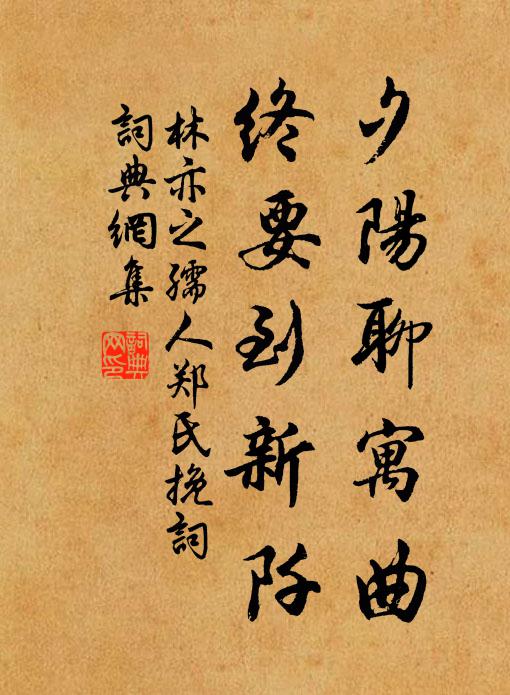 夕陽聊寓曲
終要到新阡
林亦之孺人郑氏挽詞
詞典網集
詞典网印